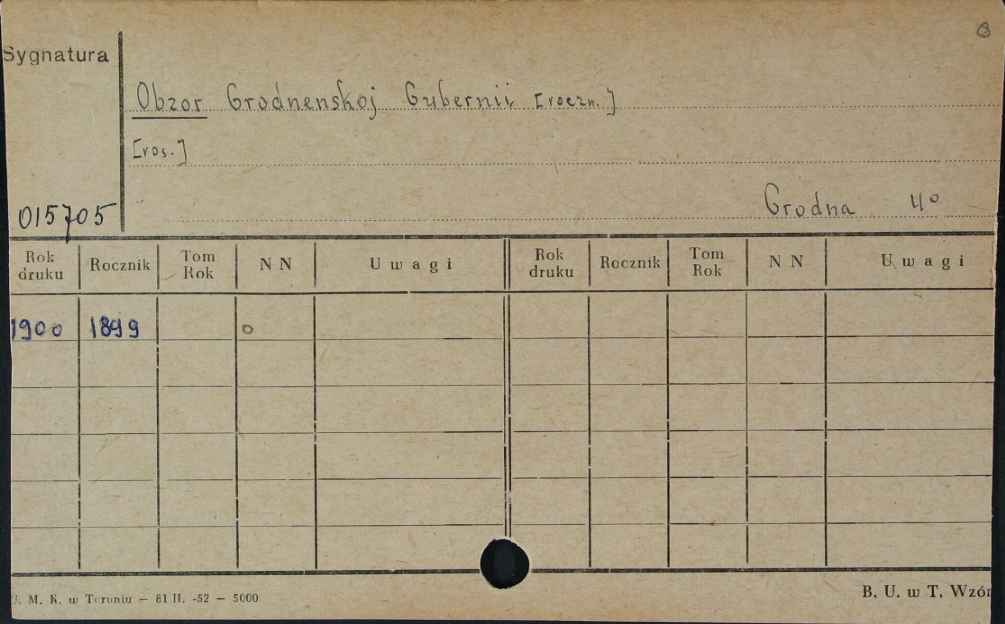 Sygnatura
Obzor Grodnenskoj Gubernii [roczn.]
[ros.]
015705
Grodna 4°
Rok druku Rocznik Tom Rok N N Uwagi Rok druku Rocznik Tom Rok N N Uwagi
1900 1899 o
. M. K. w Toruniu — 81 II. -52 — 5000
B. U. w T. Wzór